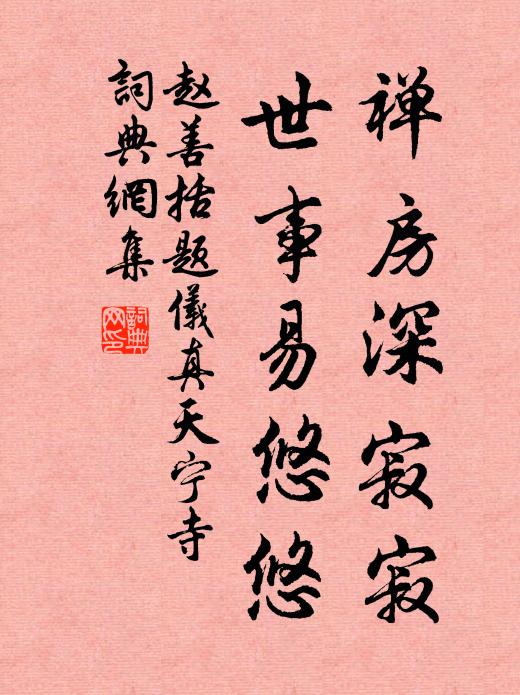 禅房深寂寂
世事易悠悠
赵善括题儀真天宁寺
詞典網集
詞典網印